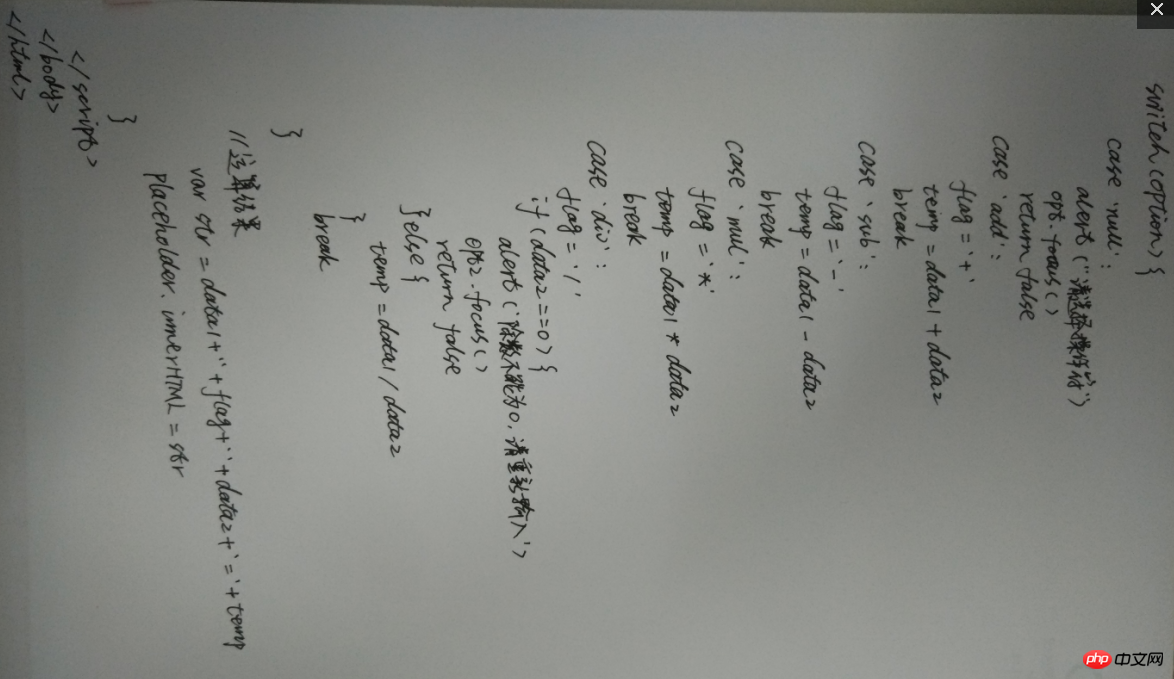 switch(option) {
case 'null':
alert("请选择操作符")
opt.focus()
return false
case 'add':
flag = '+'
temp = data1 + data2
break
case 'sub':
flag = '-'
temp = data1 - data2
break
case 'mul':
flag = '*'
temp = data1 * data2
break
case 'div':
flag = '/'
if (data2 == 0) {
alert('除数不能为0,请重新输入')
opt2.focus()
return false
}else {
temp = data1 / data2
}
break
}
//运算结果
var str = data1+''+flag+''+data2+'='+temp
placeholder.innerHTML = str
}
</script>
</body>
</html>
php 中文网